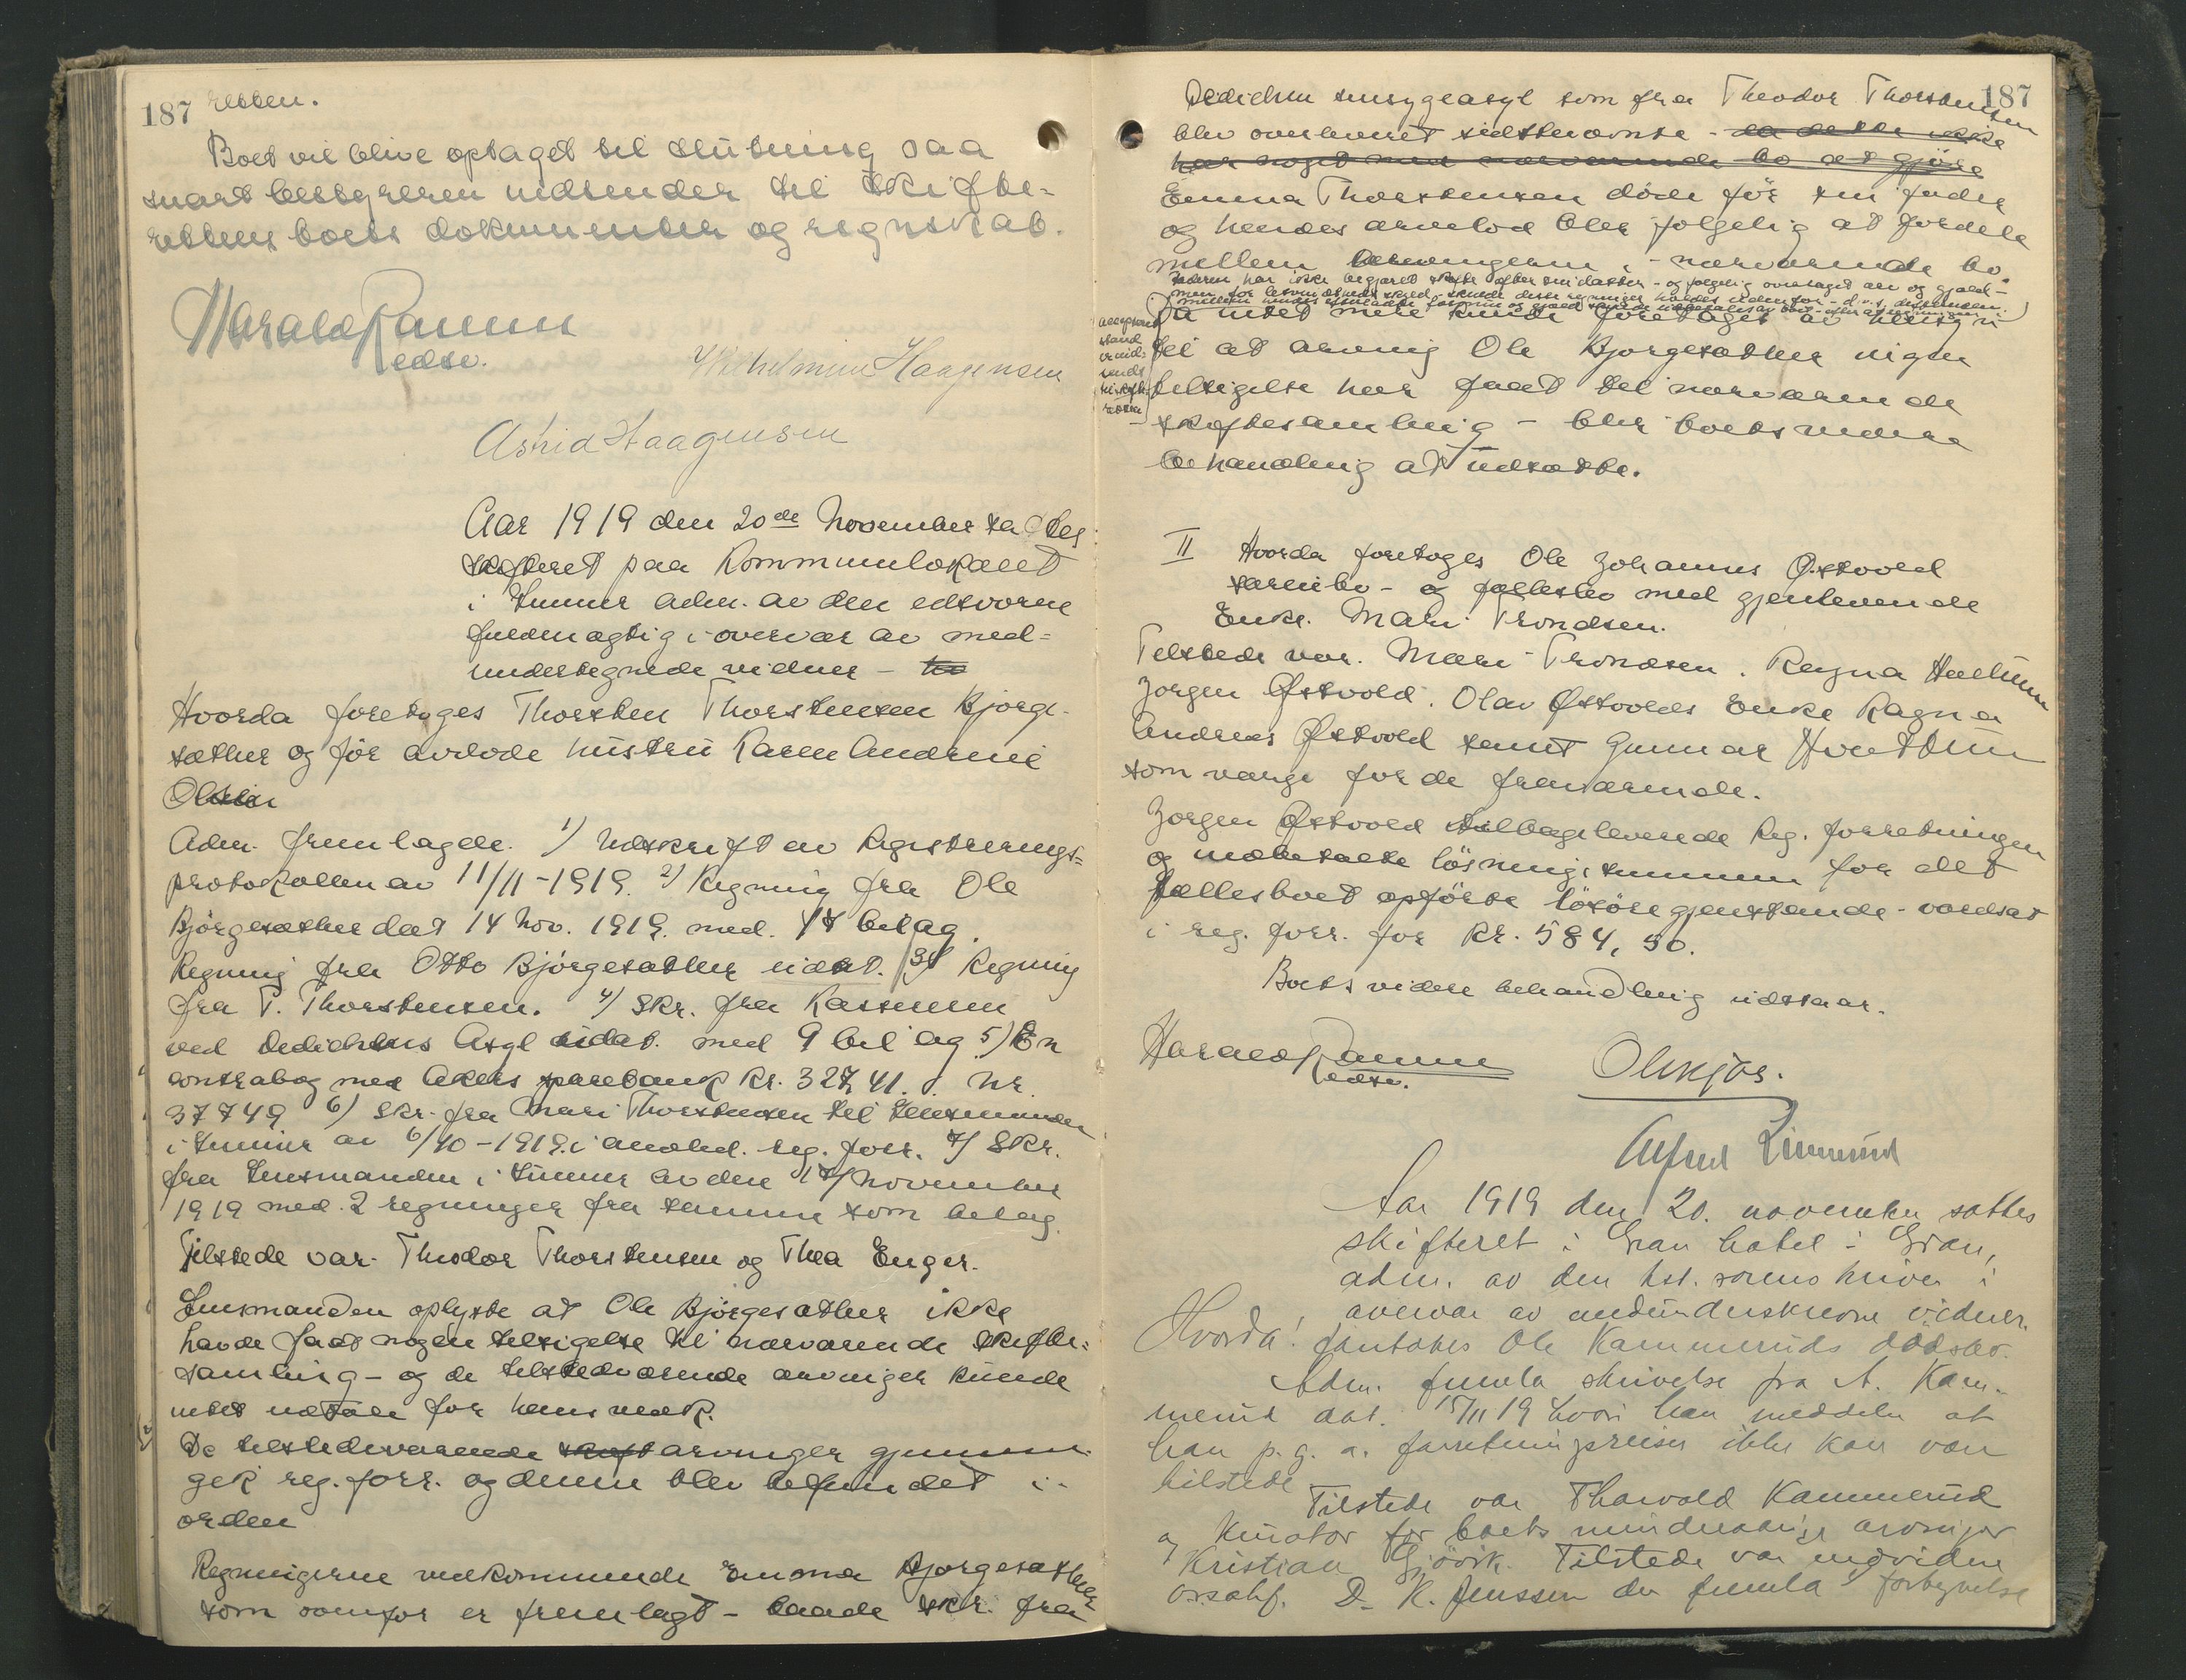 187 retten.
Boet vil blive optaget til slutning saa
snart bestyreren indsender til skifte-
retten boets dokumenter og regnskab.
Harald Ramm
edsv.
Wilhelmine Haagensen
Astrid Haagensen
Aar 1919 den 20de November sattes
skifteret paa Kommunelokalet
i Lunner adm. av den edsvorne
fuldmægtig i overvær av med-
undertegnede vidner –
Hvorda foretoges Thorsten Thorstensen Bjørge-
sæther og før avdøde hustru Karen Andrine
Olsen
Adm. fremlagde. 1) Utskrift av Registrerings-
protokollen av 11/11-1919. 2) Regning fra Ole
Bjørgesæther dat 14 Nov. 1919. med. 17 bilag.
Regning fra Otto Bjørgesæther udat. 3) Regning
fra T. Thorstensen. 4) Skr. fra Kassereren
ved Dedichens Asyl udat. med 9 bilag 5) En
contrabog med Akers sparebank Kr. 327,41. Nr.
37749 6) Skr. fra Mari Thorstensen til lensmanden
i Lunner av 6/10-1919. i anled. reg. forr. 7) Skr.
fra lensmanden i Lunner av den 17/November
1919 med. 2 regninger fra samme som bilag.
Tilstede var Theodor Thorstensen og Thea Enger.
Lensmanden oplyste at Ole Bjørgesæther ikke
havde faat nogen tilsigelse til nærværende skifte-
samling – og de tilstedeværende arvinger kunde
intet uttale for hans vedk.
De tilstedeværende arvinger gjennem-
gik reg. forr. og denne blev befundet i
orden
Regningerne vedkommende Emma Bjørgesæther
som ovenfor er fremlagt – baade skr. fra
187
Dedichen sinsygeasyl som fra Theodor Thorstensen
blev overleveret sidstnævnte – da dette ikke
har noget med nærværende bo at gjøre
Emma Thorstensen døde før sin fader
og hendes arvelod bler følgelig at fordele
mellem arvingerne i nærværende bo.
Faderen har ikke begjæret skifte efter sin datter – og følgelig overtaget arv og gjæld –
Da intet mere kunde foretages av hensyn
til at arving Ole Bjørgesæther ingen
tilsigelse har faat til nærværende
skiftesamling – bler boets videre
behandling at utsætte.
II Hvorda foretoges Ole Johannes Østvold
særeiebo – og fællesbo med gjenlevende
Enke. Mari Trondsen.
Tilstede var. Mari Trondsen. Ragna Hallum
Jørgen Østvold. Olav Østvolds Enke Ragna
Andreas Østvold samt Gunnar Hvattum
som værge for de fraværende.
Jørgen Østvold tilbageleverede Reg. forretningen
og indbetalte løsningssummen for det
fællesboet opførte løsøregjenstande – værdsat
i reg. forr. for Kr. 584,50.
Boets videre behandling utstaar.
Harald Ramm
edsv.
O Lukjos.
Alfred Linnerud
Aar 1919 den 20. november sattes
skifteret i Gran hotel i Gran,
adm. av den kst. sorenskriver i
overvær av medunderskrevne vidner.
Hvorda! foretokes Ole Kammeruds dødsbo.
Adm. fremla skrivelse fra A. Kam-
merud dat. 15/11 19 hvori han meddeler at
han p. g. a. forretningsreiser ikke kan være
tilstede
Tilstede var Tharvald Kammerud
og kurator for boets mindreaarige arvinger
Kristian Gjövik. Tilstede var endvidere
o.r.sakf. D. K. Jenssen der fremla forbyrelse